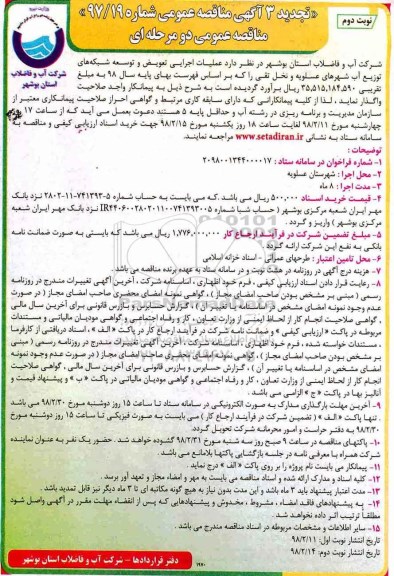 نوبت دوم
«تجدید ۳ آگهی مناقصه عمومی شماره ۹۷/۱۹»
مناقصه عمومی دو مرحله ای
شرکت آب و فاضلاب
استان بوشهر
شرکت آب و فاضلاب استان بوشهر در نظر دارد عملیات اجرایی تعویض و توسعه شبکه‌های
توزیع آب شهرهای عسلویه و نخل تقی را که بر اساس فهرست بهای پایه سال ۹۸ به مبلغ
تقریبی ۳۵,۵۱۵,۱۸۴,۵۹۰ ریال برآورد گردیده است به شرح ذیل به پیمانکار واجد صلاحیت
واگذار نماید، لذا از کلیه پیمانکارانی که دارای سابقه کاری مرتبط و گواهی احراز صلاحیت پیمانکاری معتبر از
سازمان مدیریت و برنامه ریزی در رشته آب و حداقل پایه ۵ هستند دعوت بعمل می آید که از ساعت ۱۷ روز
چهارشنبه مورخ ۹۸/۲/۱۱ لغایت ساعت ۱۸ روز یکشنبه مورخ ۹۸/۲/۱۵ جهت خرید اسناد ارزیابی کیفی و مناقصه به
سامانه ستاد به نشانی www.setadiran.ir مراجعه نمایند.
توضیحات :
۱- شماره فراخوان در سامانه ستاد : ۲۰۹۸۰۰۱۳۴۴۰۰۰۰۱۷
۲- محل اجرا : شهرستان عسلویه
۳- مدت اجرا : ۸ ماه
۴- قیمت خرید اسناد ۵۰۰,۰۰۰ ریال می باشد .که می بایست به حساب شماره ۵-۷۴۱۳۹۳-۱۱-۲۸۰۲ نزد بانک
مهر ایران شعبه مرکزی بوشهر نزد بانک مهر ایران شعبه
مرکزی بوشهر ) واریز و گردد .
۵- مبلغ تضمین شرکت در فرآیند ارجاع کار ۱,۷۷۶,۰۰۰,۰۰۰ ریال می باشد که بایستی به صورت ضمانت نامه
بانکی به نفع این شرکت ارائه گردد .
۶- محل تامین اعتبار : طرحهای عمرانی - اسناد خزانه اسلامی
۷- هزینه درج آگهی در روزنامه در هشت نوبت و در سامانه ستاد به عهده برنده مناقصه می باشد .
۸- رعایت قرار دادن اسناد ارزیابی کیفی ، فرم خود اظهاری ، اساسنامه شرکت ، آخرین آگهی تغییرات مندرج در روزنامه
رسمی ( مبنی بر مشخص بودن صاحب امضای مجاز ) ، گواهی نمونه امضای محضری صاحب امضای مجاز ( در صورت
عدم وجود نمونه امضای مشخص در اساسنامه یا تغییرات آن ) ، گزارش حسابرس و بازرس قانونی برای آخرین سال مالی ،
گواهی صلاحیت انجام کار از لحاظ ایمنی از وزارت تعاون ، کار و رفاه اجتماعی و گواهی مودیان مالیاتی و مستندات
مربوطه در پاکت « ارزیابی کیفی » و ضمانت نامه شرکت در فرآیند ارجاع کار در پاکت « الف » ، اسناد دریافتی از کارفرما
، مستندات خواسته شده ، فرم خود اظهاری ، اساسنامه شرکت ، آخرین آگهی تغییرات مندرج در روزنامه رسمی ( مبنی
بر مشخص بودن صاحب امضای مجاز ) ، گواهی نمونه امضای محضری صاحب امضای مجاز ( در صورت عدم وجود نمونه
امضای مشخص در اساسنامه یا تغییر آن ) ، گزارش حسابرس و بازرس قانونی برای آخرین سال مالی ، گواهی صلاحیت
انجام کار از لحاظ ایمنی از وزارت تعاون ، کار و رفاه اجتماعی و گواهی مودیان مالیاتی در پاکت « ب » و پیشنهاد قیمت و
آنالیز بها در پاکت « ج » الزامی می باشد .
۹- آخرین مهلت بارگذاری مدارک به صورت الکترونیکی در سامانه ستاد تا ساعت ۱۵ روز دوشنبه مورخ ۹۸/۲/۳۰ می باشد
. تنها پاکت « الف » ( تضمین شرکت در فرآیند ارجاع کار ) می بایست به صورت فیزیکی تا ساعت ۱۵ روز دوشنبه مورخ
۹۸/۲/۳۰ به دفتر حراست و امور محرمانه شرکت تحویل گردد.
۱۰- پاکتهای مناقصه در ساعت ۹ صبح روز سه شنبه مورخ ۹۸/۲/۳۱ گشوده خواهد شد . حضور یک نفر به عنوان نماینده
شرکت همراه با معرفی نامه در جلسه بازگشائی پاکتها بلامانع می باشد .
۱۱- پیمانکار می بایست نام پروژه را بر روی پاکت « الف » درج نماید .
۱۲- کلیه اسناد و مدارک ارائه شده و اسناد مناقصه می بایست به مهر و امضاء مجاز و تعهد آور برسد .
۱۳- مدت اعتبار پیشنهاد باید ۳ ماه باشد و این مدت بدون نیاز به هیچ گونه مکاتبه ای تا ۳ ماه دیگر نیز قابل تمدید باشد .
۱۴- به پیشنهادهای فاقد امضاء ، مشروط ، مخدوش و پیشنهادهایی که پس از انقضاء مهلت مقرر در آگهی واصل شود
مطلقاً ترتیب اثر داده نخواهد شد .
۱۵- سایر اطلاعات و مشخصات مربوطه در اسناد مناقصه مندرج می باشد .
تاریخ انتشار نوبت اول: ۹۸/۲/۱۱
تاریخ انتشار نوبت دوم: ۹۸/۲/۱۴
دفتر قراردادها - شرکت آب و فاضلاب استان بوشهر